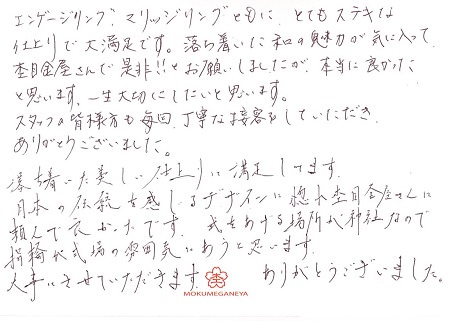 エンゲージリング、マリッジリングともに、とてもステキな
仕上りで大満足です。落ち着いた和の魅力が気に入って
杢目金屋さんで是非!!とお願いしましたが、本当に良かった
と思います。一生大切にしたいと思います。
スタッフの皆様方も毎回、丁寧な接客をしていただき
ありがとうございました。
落ち着いた美しい仕上りに満足してます。
日本の伝統を感じるデザインに惚れ杢目金屋さんに
頼んで良かったです。式をあげる場所が神社なので
指輪が式場の雰囲気にあうと思います。
大事にさせていただきます。ありがとうございました。
MOKUMEGANEYA